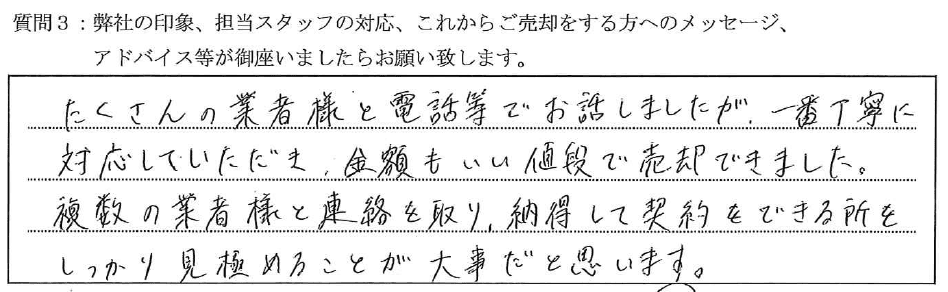 質問３：弊社の印象、担当スタッフの対応、これからご売却をする方へのメッセージ、
アドバイス等が御座いましたらお願い致します。
たくさんの業者様と電話等でお話しましたが、一番丁寧に
対応していただき、金額もいい値段で売却できました。
複数の業者様と連絡を取り、納得して契約をできる所を
しっかり見極めることが大事だと思います。